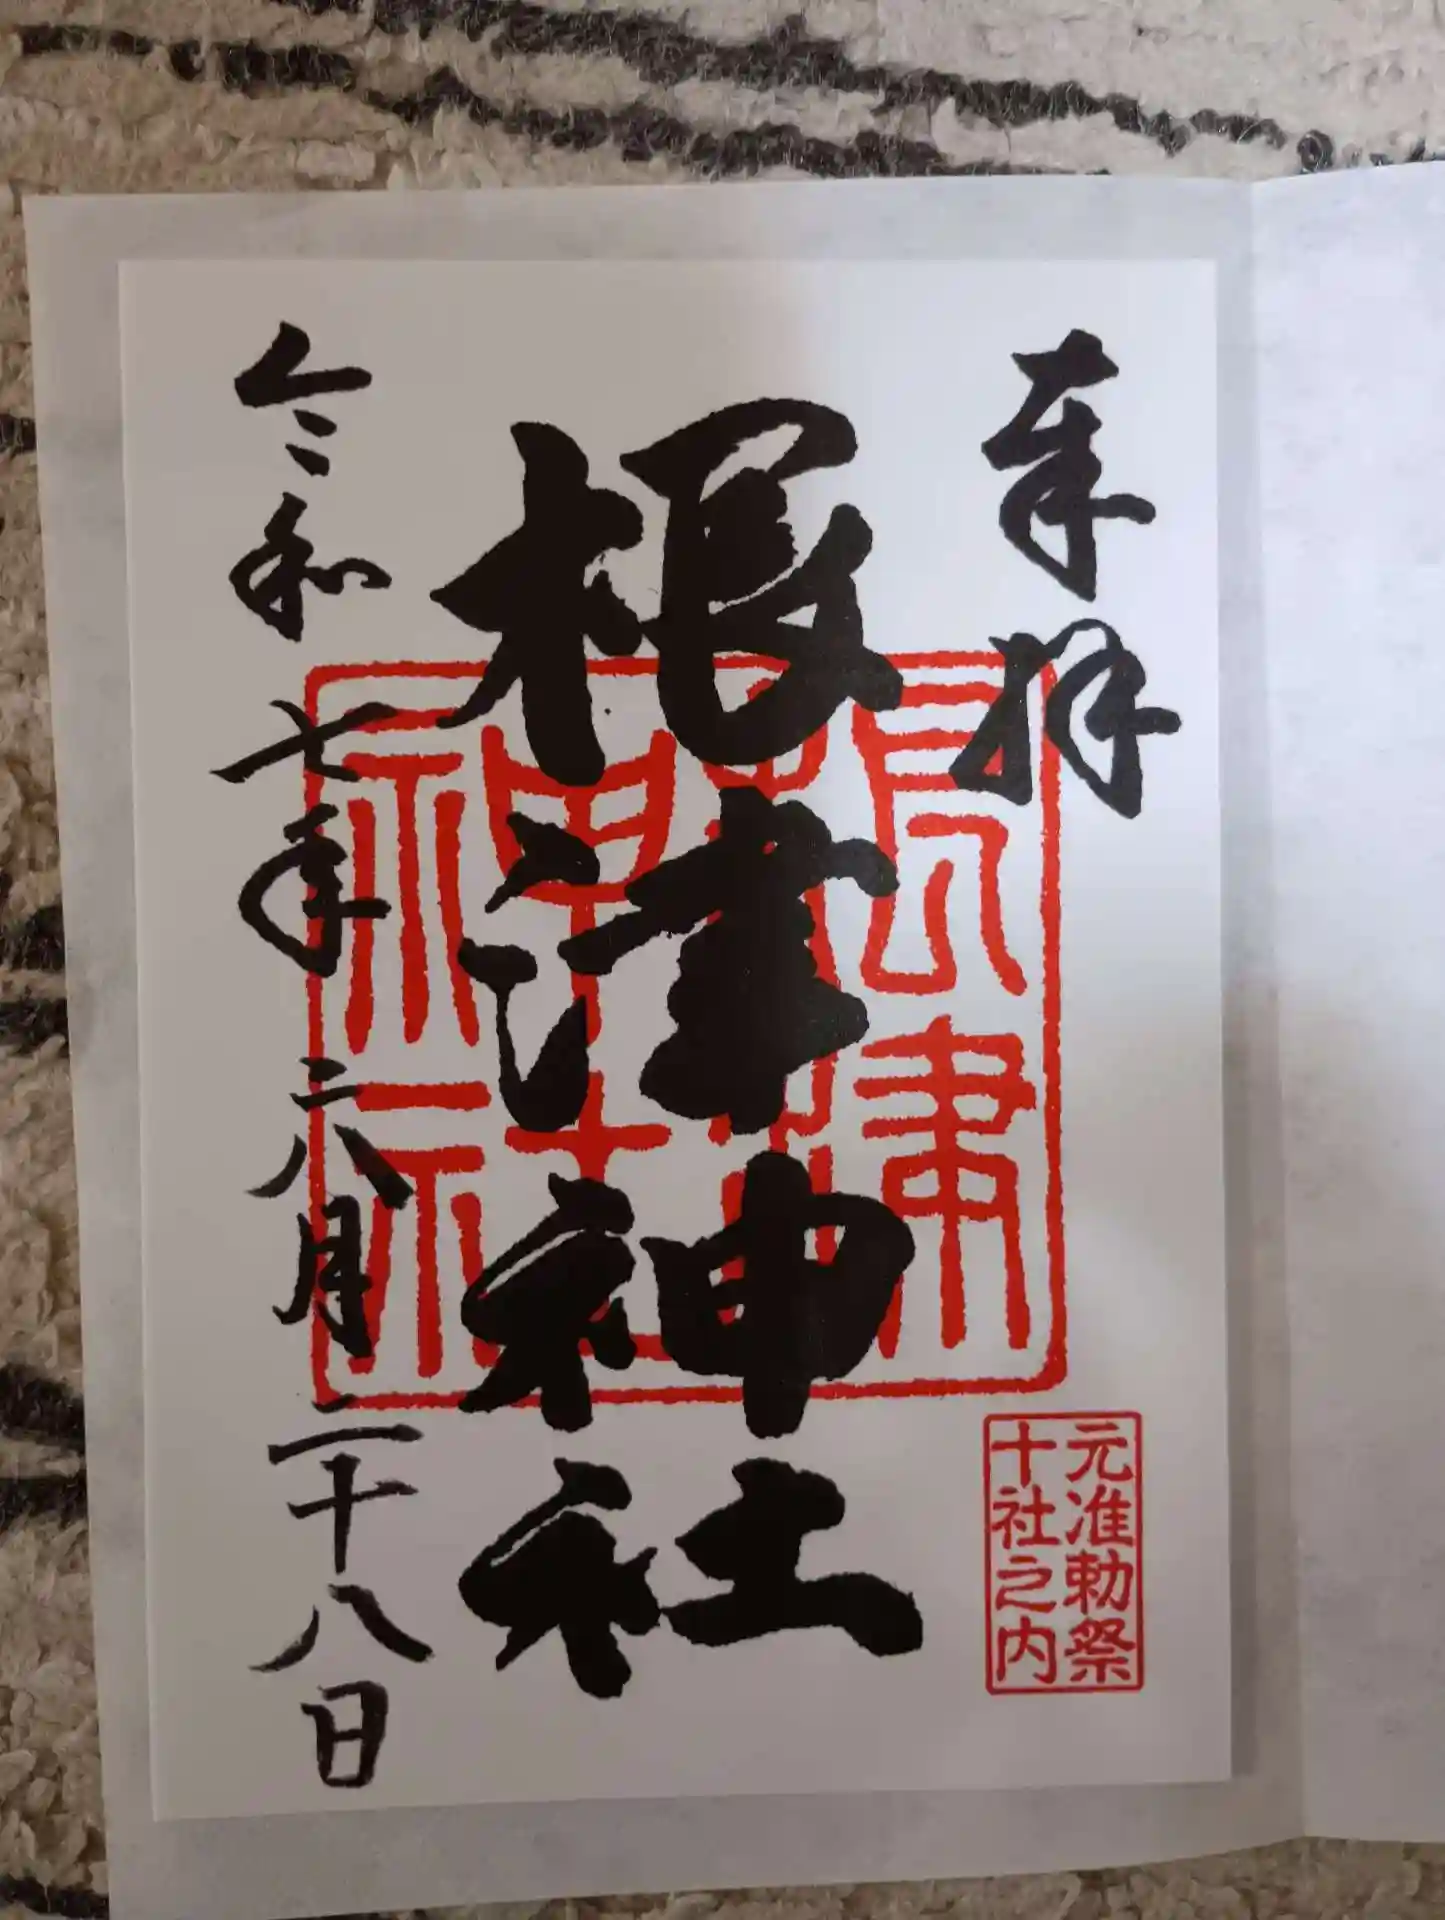 奉拝
根津神社
令和七年六月二十八日
根津
神社
元准勅祭
十社之内